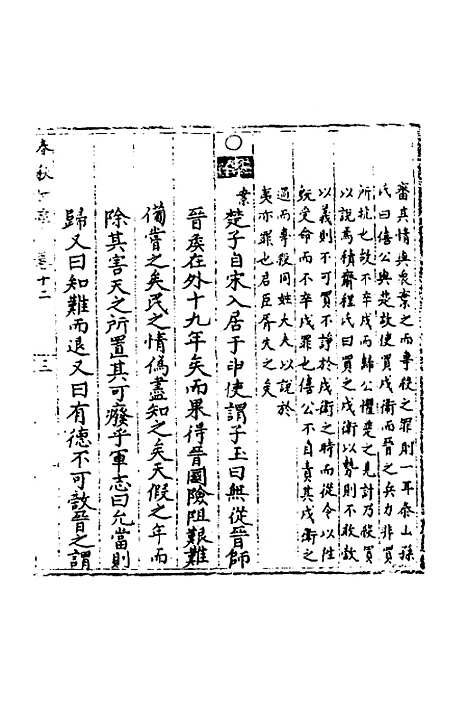 審其情與衆棄之而專殺之罪則一耳泰山孫
氏曰僖公與楚故使買戍衛而晉之矣力非買
所抗也故不卒戍而歸公懼楚之見討乃殺買
以說焉積齋程氏曰買之戍衛以勢則不敢敵
以義則不可買不諍於戍衛之時而從令以往
旣受命而不卒戍罪也僖公不自責其戍衛之
過而專殺同姓大夫以說於
夷亦罪也君臣胥失之矣
楚子自宋入居于申使謂子玉曰無從晉師
晉侯在外十九年矣而果得晉國險阻艱難
備嘗之矣民之情偽盡知之矣天假之年而
除其害天之所置其可廢乎軍志曰允當則
歸又曰知難而退又曰有德不可敵晉之謂
春秋 卷十二 三